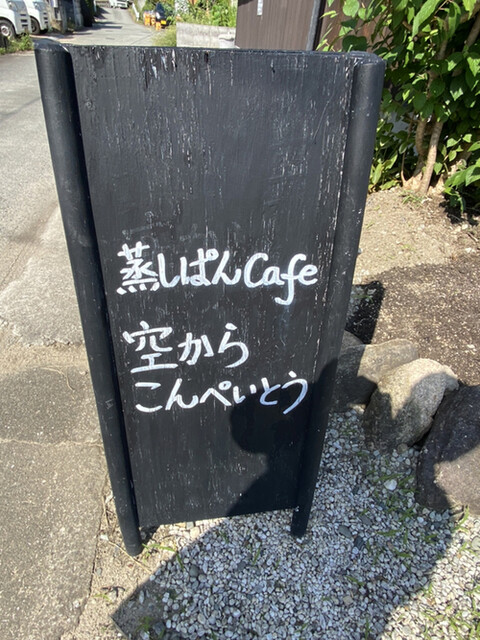 蒸しぱんCafe
空から
こんぺいとう